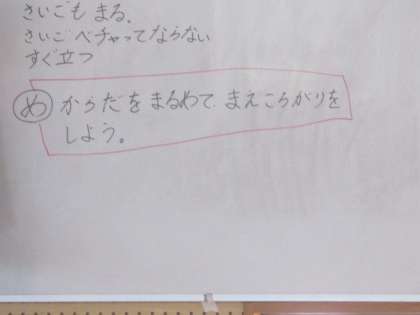 さいごもまる、
さいごベチャってならない
すぐ立つ
め からだをまるめて まえころがりを
しよう。